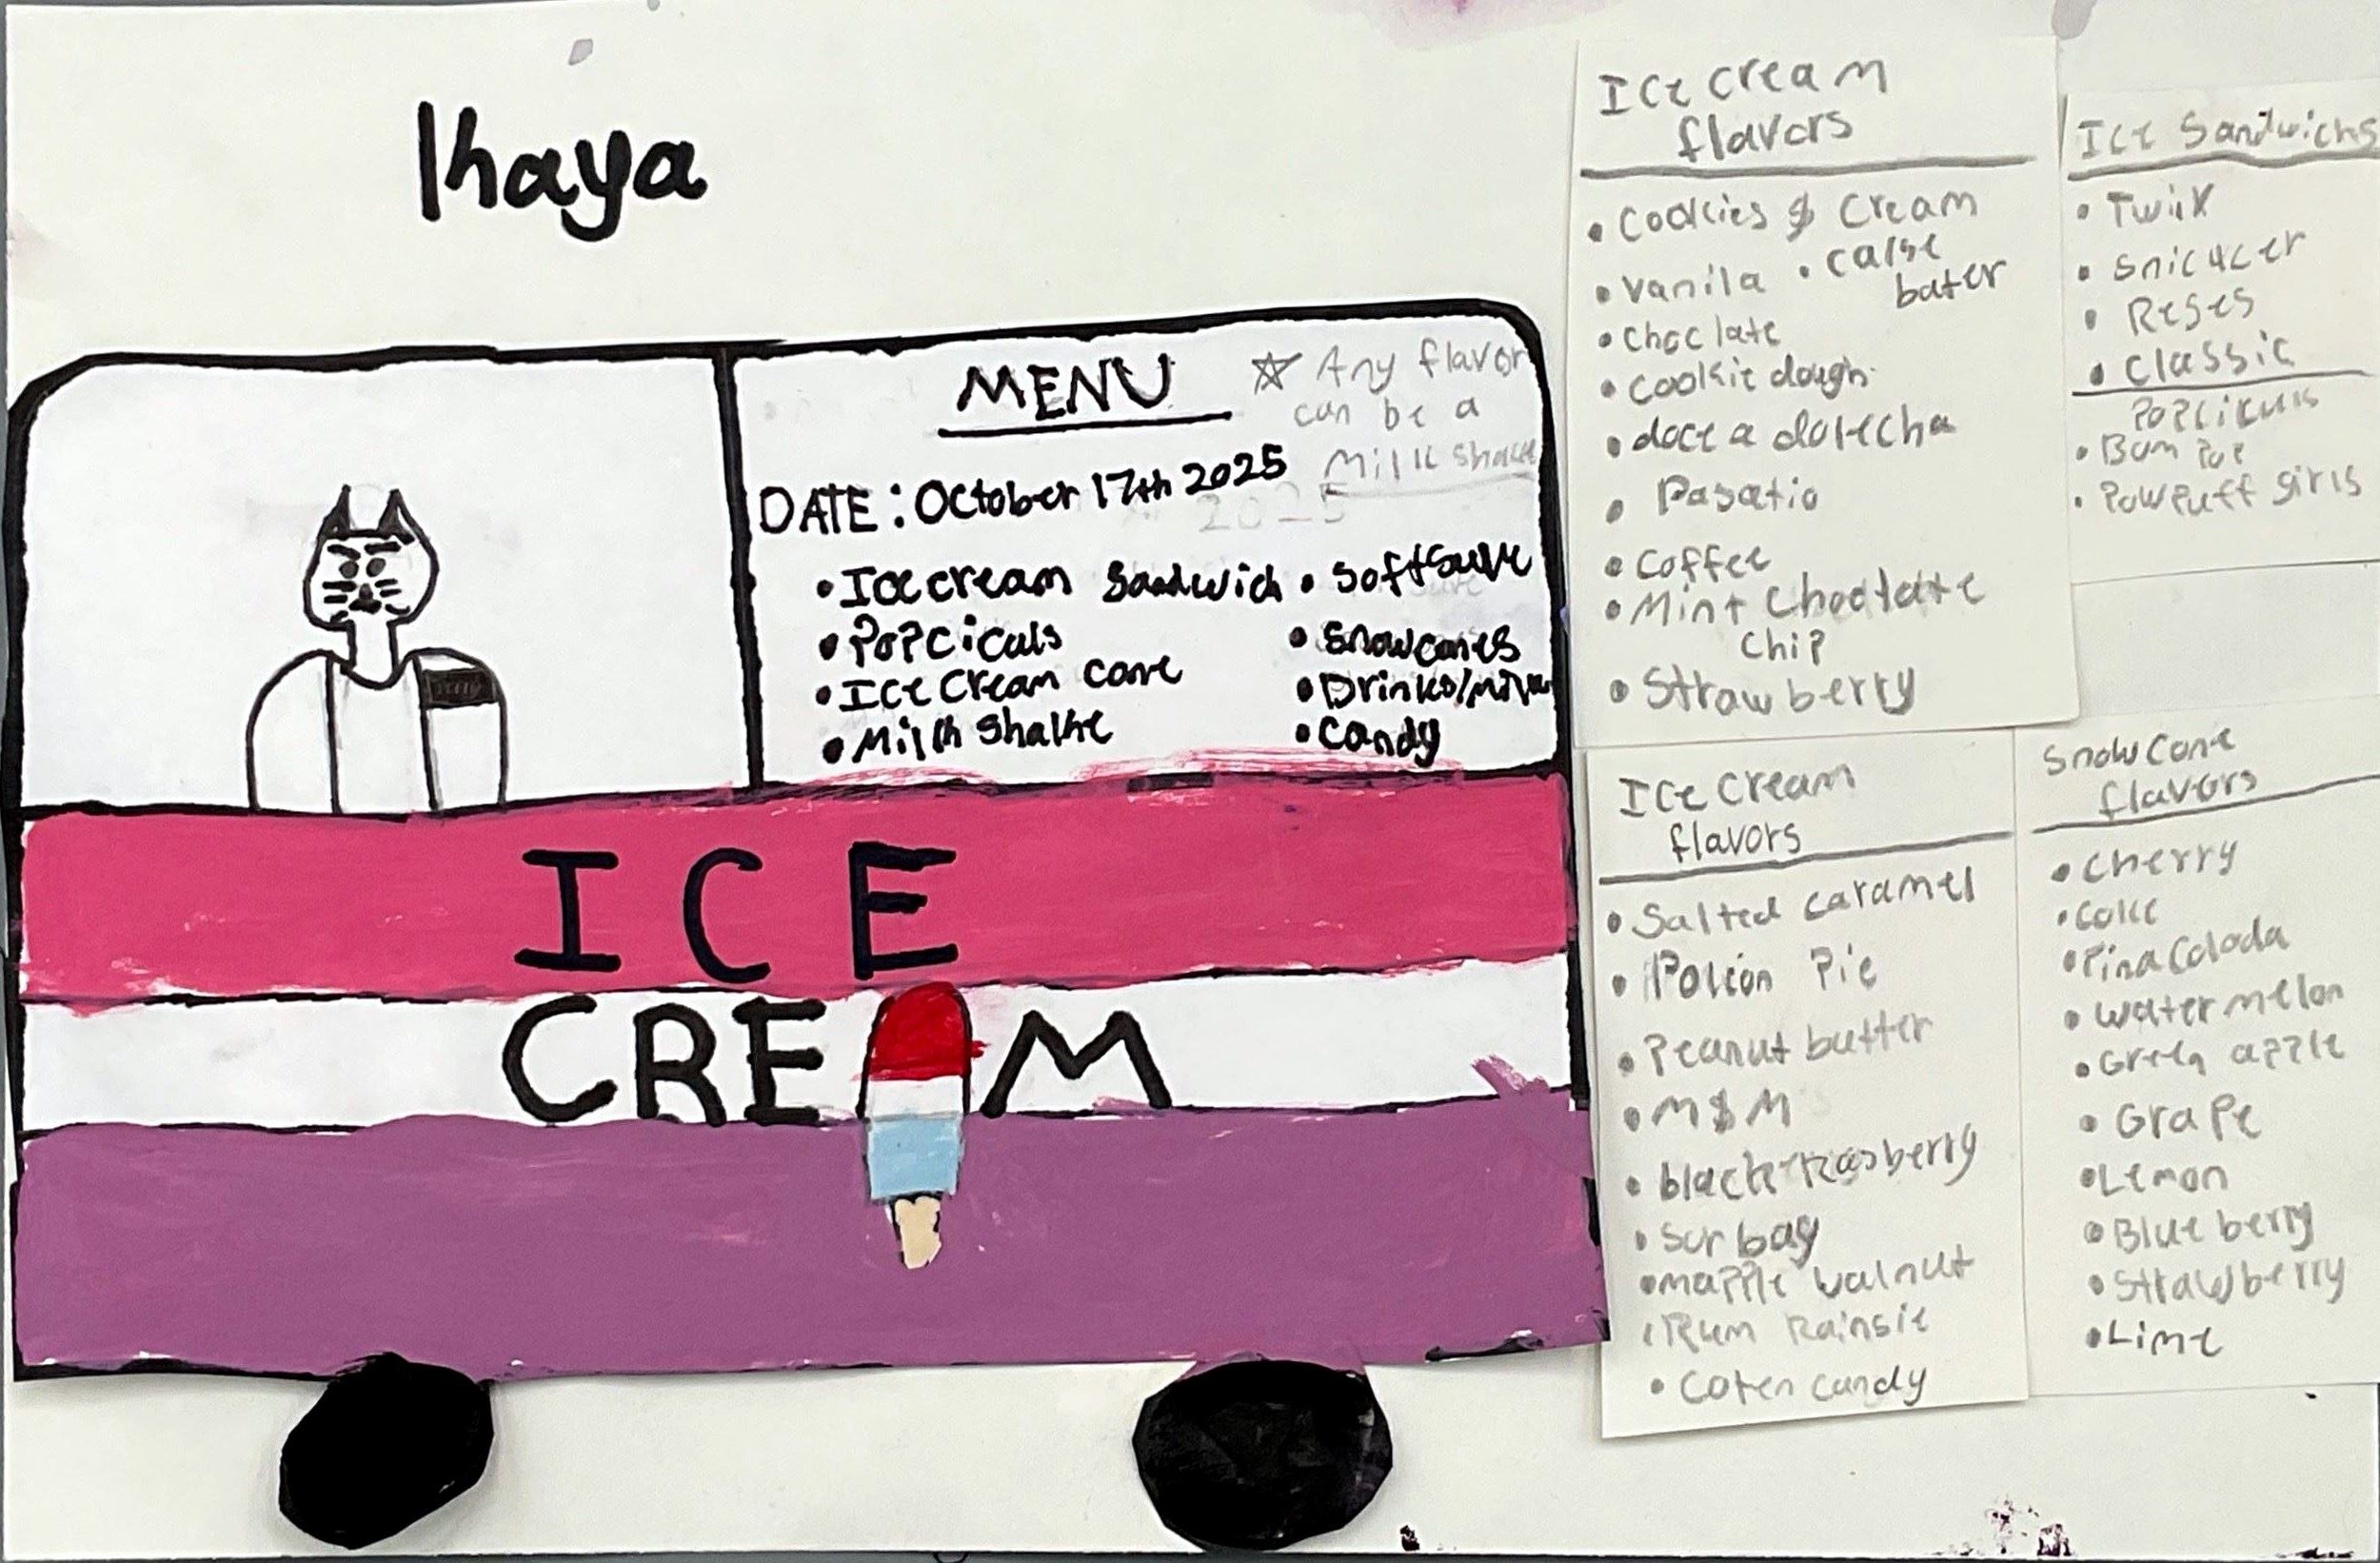 Ihaya
MENU
☆ Any flavor
can be a
Milk shake
DATE: October 17th 2025
2025
• Ice cream Sandwich
• Popcicals
• Ice Cream cone
• Milk Shake
• Softsurve
• Snowcones
• Drinks/
• Candy
ICE
CRE M
Ice cream
flavors
• Cookies & Cream
• Vanila
• calse
bater
• Choclate
• Cookie dough
• doce a dolecha
• Pasatio
• Coffee
• Mint Choclate
Chip
• Strawberry
Ice Sandwichs
• Twix
• Snickcer
• Reses
• Classic
Popcikuls
• Bom Pop
• Powpuff girls
Ice cream
flavors
• Salted caramel
• Pie
• Peanut butter
• M&M
• black rasberry
• Sorbay
• mapple walnut
• Rum Rainsie
• Coten candy
Snow Cone
flavors
• Cherry
• Coke
• Pina Colada
• Watermelon
• Green apple
• Grape
• Lemon
• Blue berry
• Strawberry
• Lime